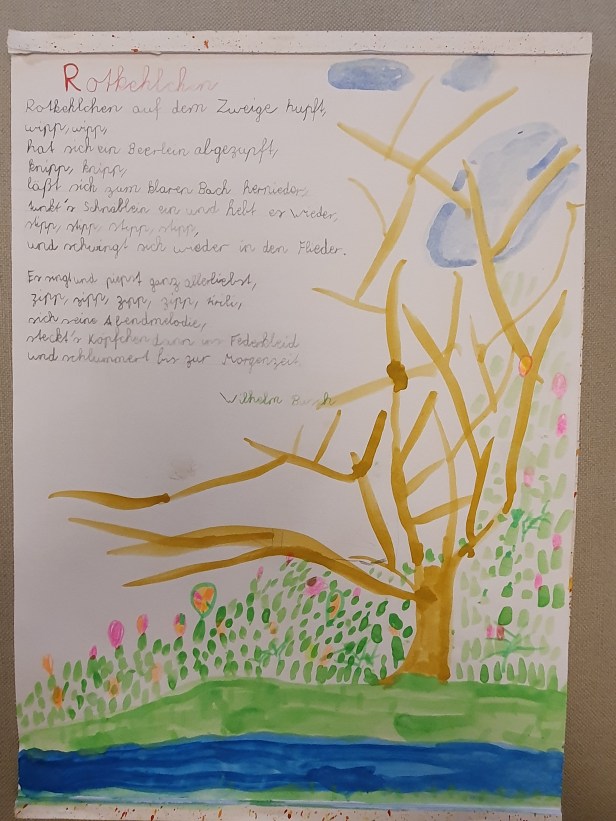 Rotkehlchen
Rotkehlchen auf dem Zweige hupft,
wipp, wipp,
hat sich ein Beerlein abgezupft,
knipp, knipp,
läßt sich zum klaren Bach hernieder,
tunkt's Schnäblein ein und hebt es wieder,
stipp, stipp, stipp, stipp,
und schwingt sich wieder in den Flieder.
Es singt und piepst ganz allerliebst,
zipp, zipp, zipp, zipp, trili,
sich seine Abendmelodie,
steckt's Köpfchen dann ins Federkleid
und schlummert bis zur Morgenzeit.
Wilhelm Busch